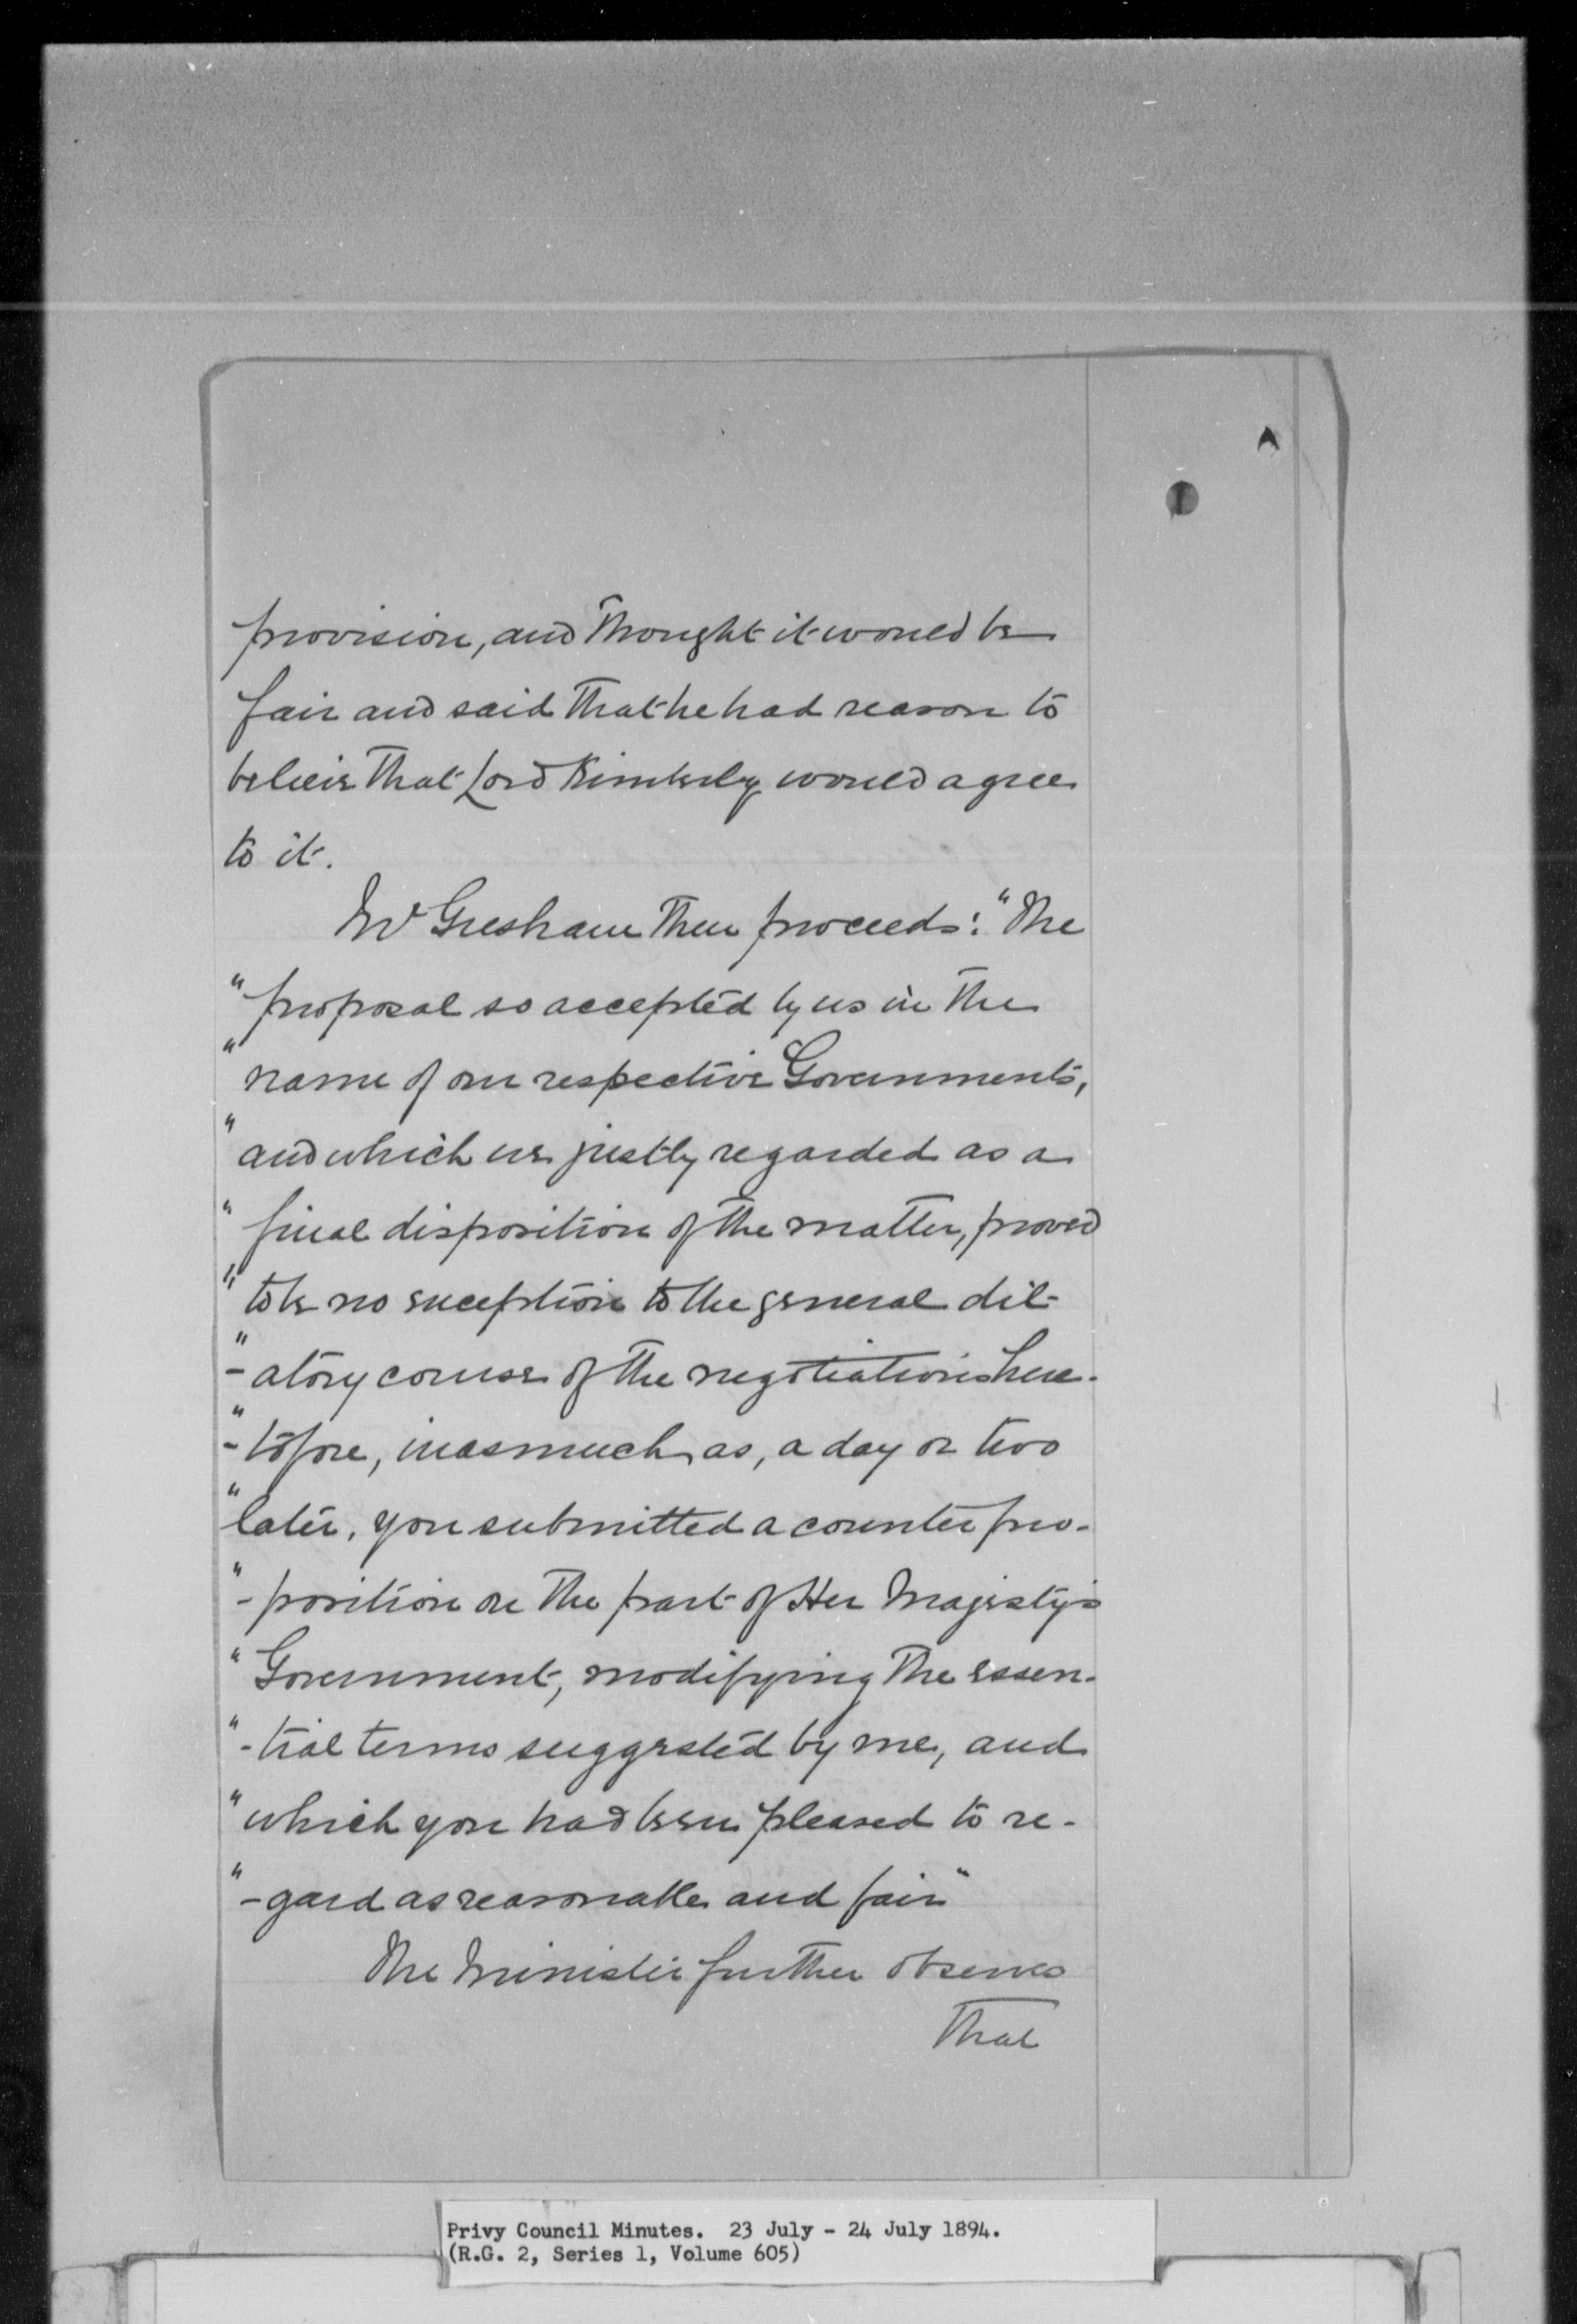 provision, and thought it would be
fair and said that he had reason to
believe that Lord Kimberly would agree
to it.
Mr Gresham then proceeds: "The
"proposal so accepted by us in the
"name of our respective Governments,
"and which we justly regarded as a
"final disposition of the matter, proved
"to be no exception to the general dil-
"-atory course of the negotiations here-
"-tofore, inasmuch as, a day or two
"later, you submitted a counter pro-
"-position on the part of Her Majesty's
"Government, modifying the essen-
"-tial terms suggested by me, and
"which you had been pleased to re-
"-gard as reasonable and fair"
The Minister further observes
that
Privy Council Minutes. 23 July - 24 July 1894.
(R.G. 2, Series 1, Volume 605)